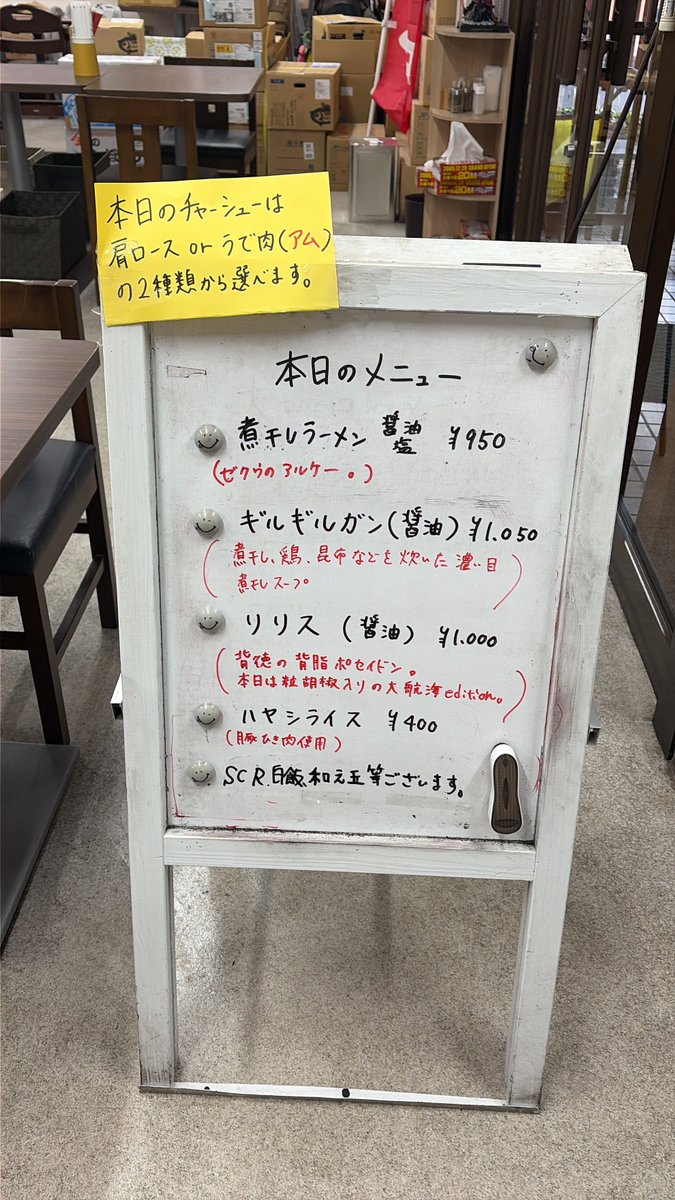 本日のチャーシューは
肩ロース or うで肉(アム)
の2種類から選べます。
本日のメニュー
煮干しラーメン 醤油 塩 ¥950
(ゼクウのアルケー。)
ギルギルガン(醤油) ¥1.050
(煮干し、鶏、昆布などを炊いた濃い目
煮干しスープ)
リリス (醤油) ¥1.000
(背徳の背脂ポセイドン。
本日は粒胡椒入りの大航海edition。)
ハヤシライス ¥400
(豚ひき肉使用)
SCR 白飯 和え玉等ございます。